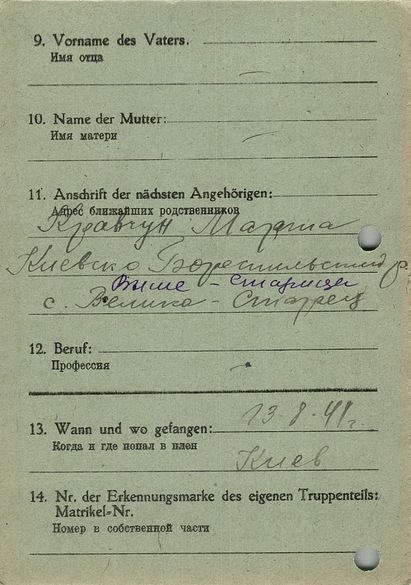 9. Vorname des Vaters.
Имя отца
—
10. Name der Mutter:
Имя матери
—
11. Anschrift der nächsten Angehörigen:
Адрес ближайших родственников
Кравчун Марта
Киевско Бореспильский р.
Выше-Старица
с. Велика-Старец
12. Beruf:
Профессия
13. Wann und wo gefangen: 13-8-41г.
Когда и где попал в плен
Киев
14. Nr. der Erkennungsmarke des eigenen Truppenteils:
Matrikel-Nr.
Номер в собственной части